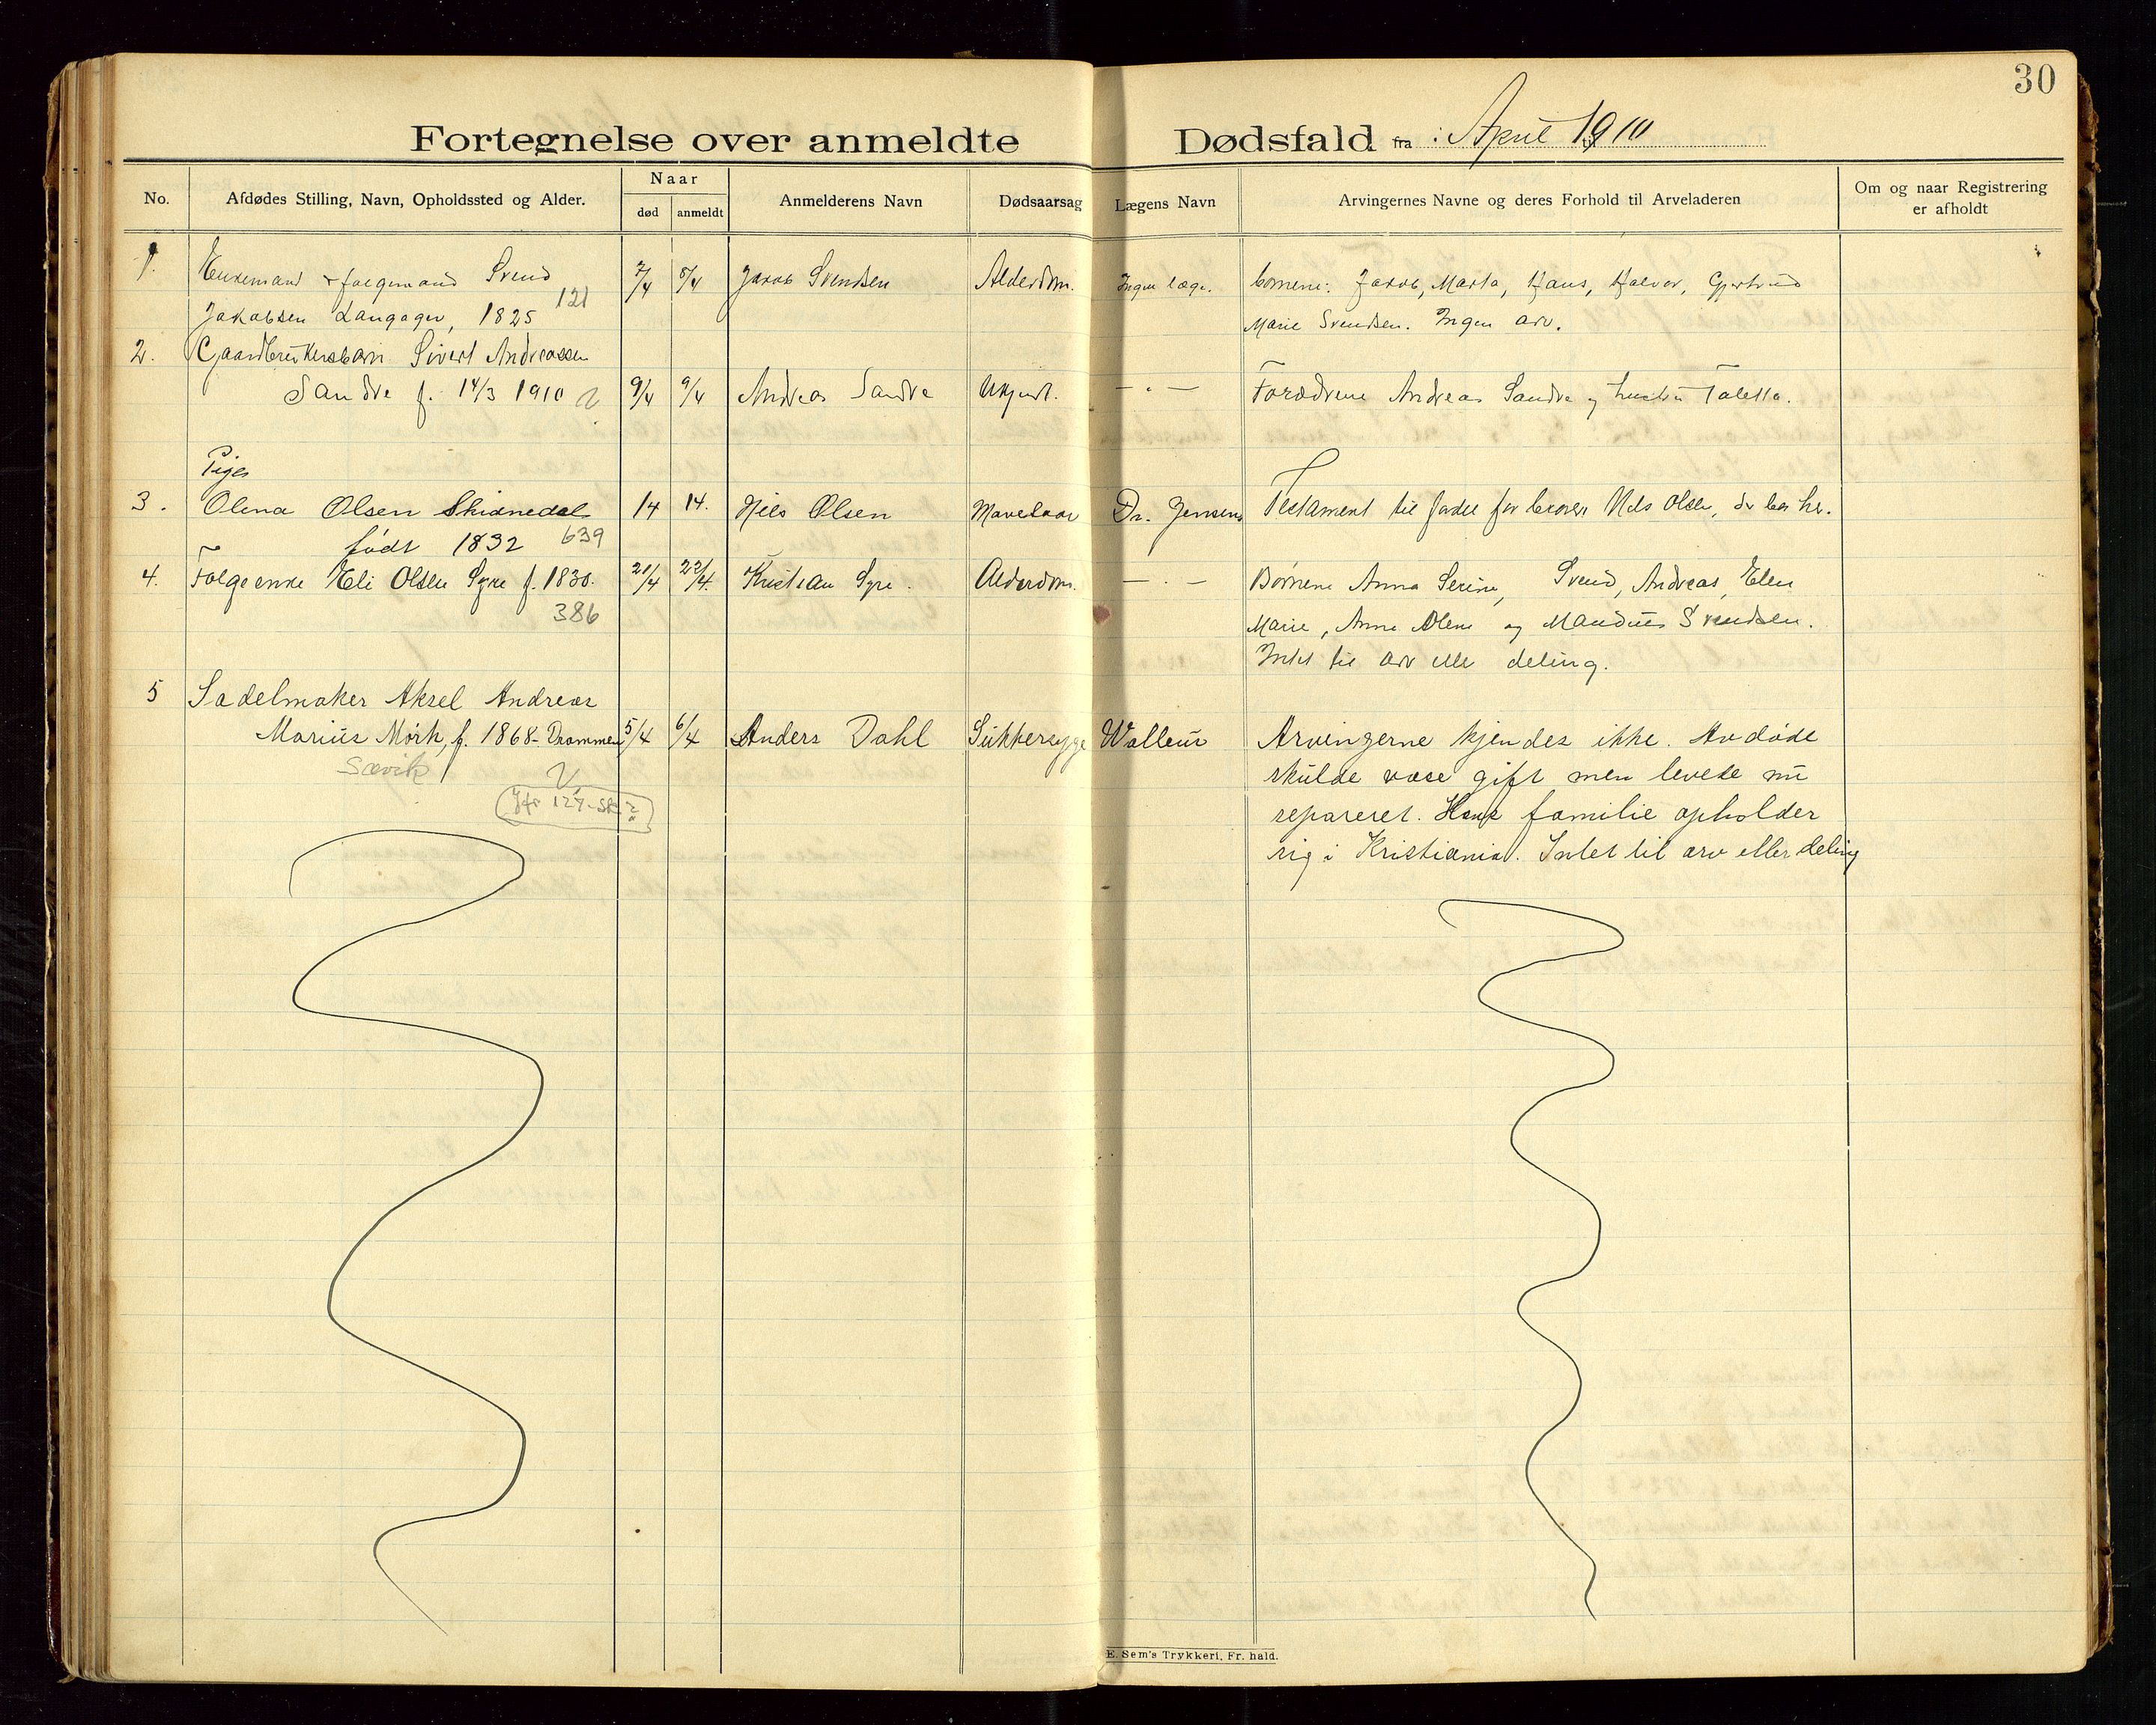 30
Fortegnelse over anmeldte Dødsfald fra i April 1910
No.
Afdødes Stilling, Navn, Opholdssted og Alder.
Naar
død
anmeldt
Anmelderens Navn
Dødsaarsag
Lægens Navn
Arvingernes Navne og deres Forhold til Arveladeren
Om og naar Registrering
er afholdt
1. Enkemand & folgemand Svend 7/4 8/4 Jakob Svendsen Alderdom. Ingen læge. børnene: Jakob, Marta, Hans, Halvor, Gjertrud
Jakobsen Langager, 1825 121 Marie Svendsen. Ingen arv.
2. Gaardbrukersbarn Sivert Andreassen
Sandve f. 14/3 1910 9/4 9/4 Andreas Sandve Ukjendt. — " — Forældrene Andreas Sandve og hustru Taletta.
Pige
3. Olena Olsen Skidnedal 14 14. Niels Olsen Mavelaar Dr. Jensens Testament til fordel for broren Nels Olsen, der bor her.
født 1832 639
4. Folgeenke Eli Olsen Syre f. 1830. 21/4 22/4. Kristian Syre. Alderdom. — . — Børnene Anna Serine, Svend, Andreas, Elen
386 Marie, Anne Olene og Maudius Svendsen.
Intet til arv elle deling.
5 Sadelmaker Aksel Andreas
Marius Mørk, f. 1868 - Drammen 5/4 6/4 Anders Dahl Sukkersyge Walleur Arvingerne kjendes ikke. Avdøde
Sævik skulde være gift men levede nu
Jfr 127-SK? separeret. Hans familie opholder
sig i Kristiania. Intet til arv eller deling
E. Sem's Trykkeri, Fr. hald.